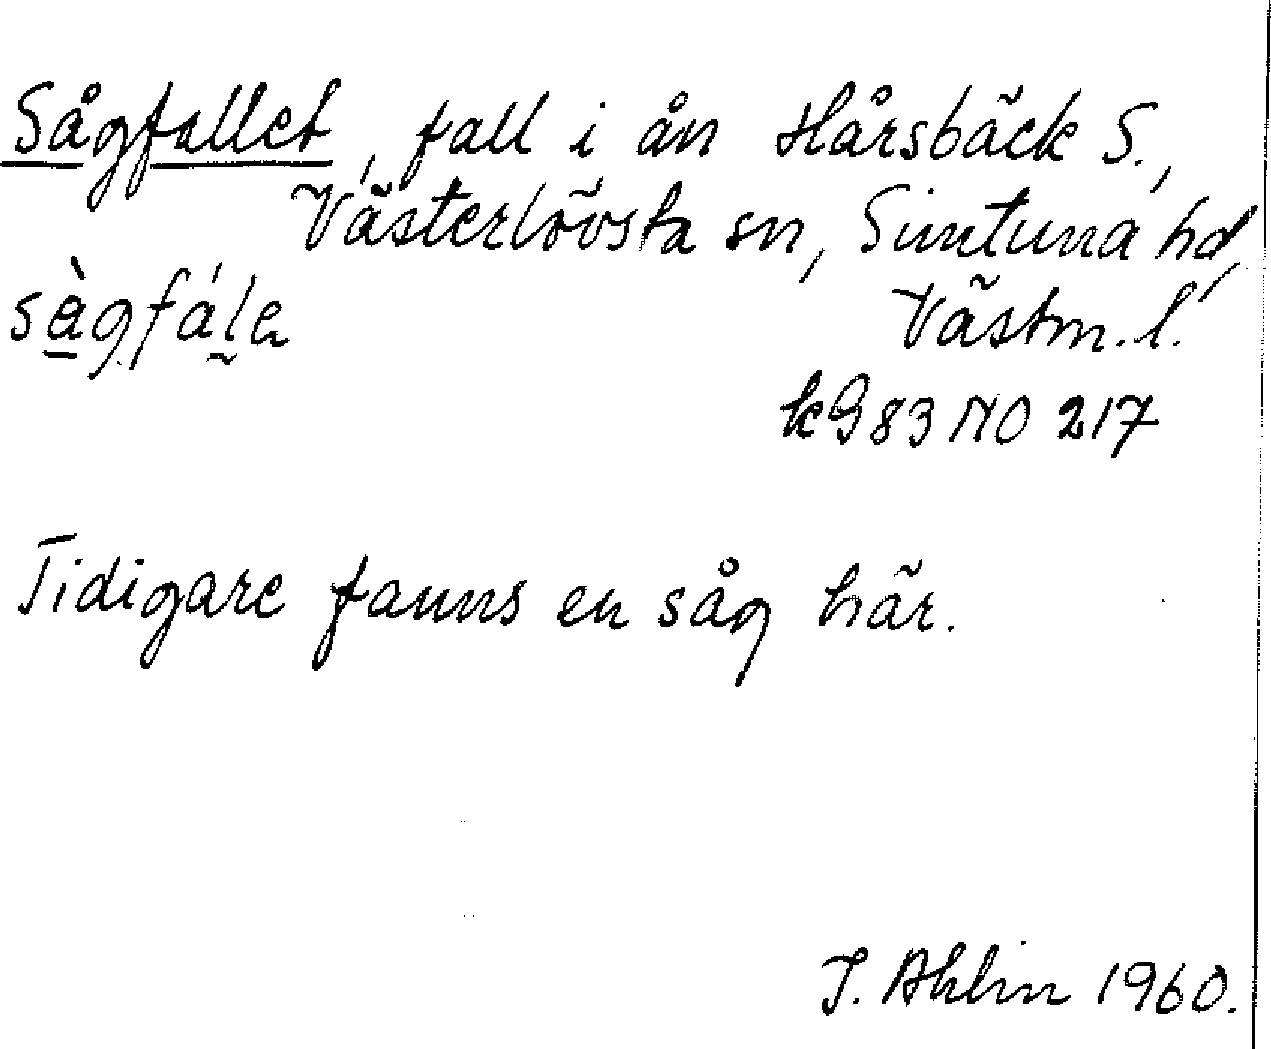 Sågfallet, fall i ån Hårsbäck S.,
Västerlövsta sn, Simtuna hd,
sàgfála Västm. l.
kG 83 NO 217
Tidigare fanns en såg här.
J. Ahlin 1960.